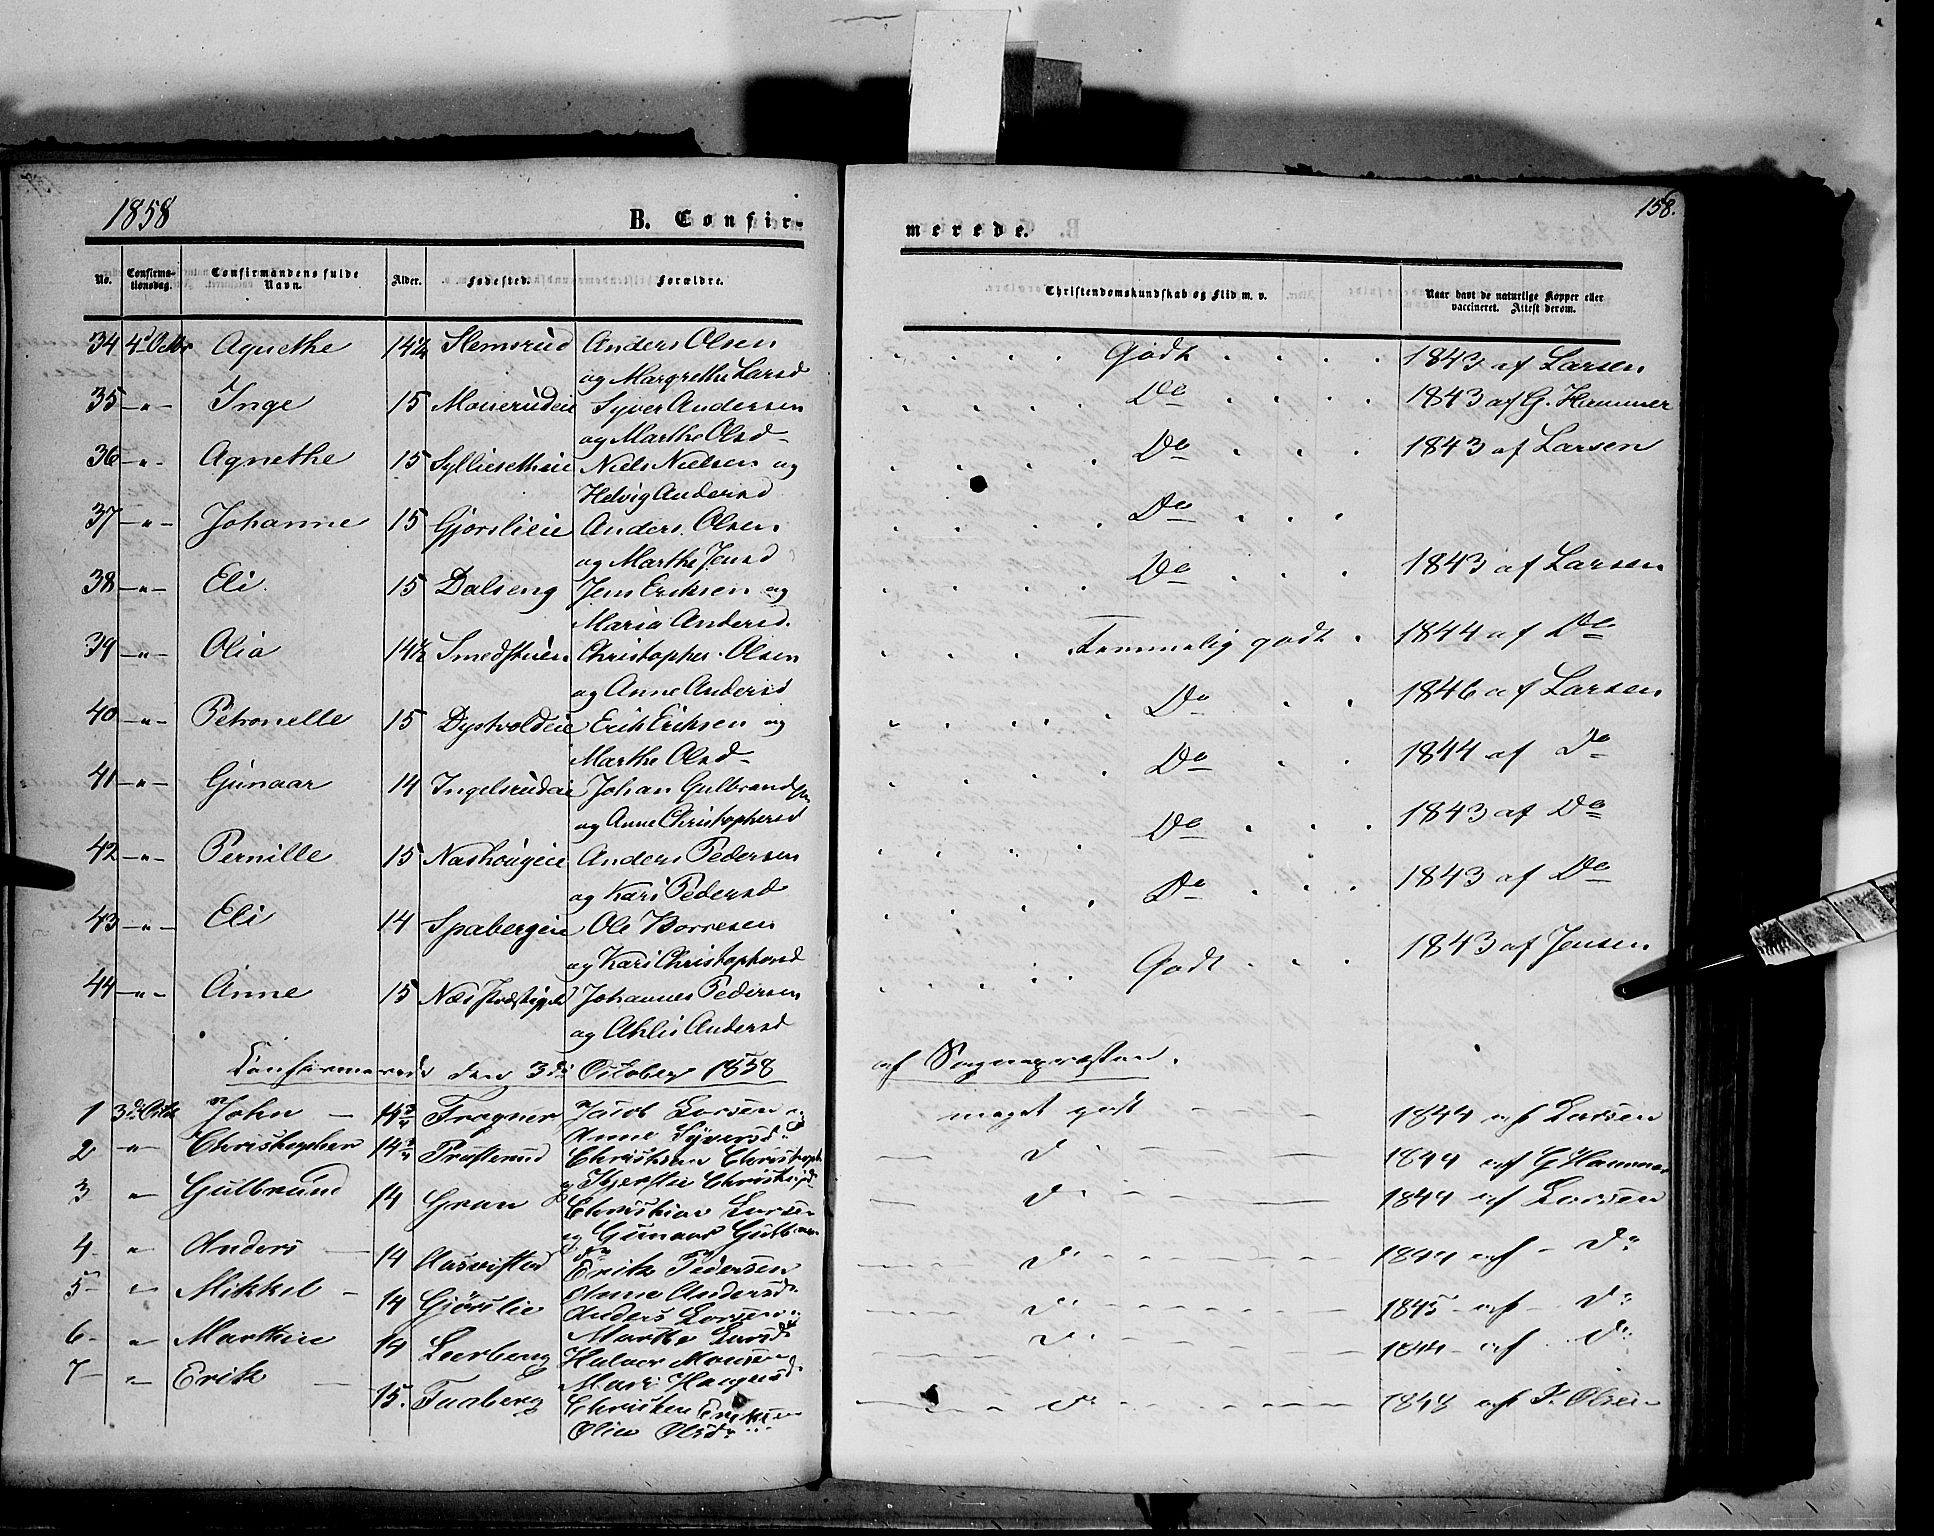 1858
B. Confir-
merede.
158.
No. Confirma-tionsdag. Confirmandens fulde Navn. Alder. Fødested. Forældre. Christendomskundskab og Flid m. v. Naar havt de naturlige Kopper eller vaccineret. Attest derom.
34 4d Octbr Agnethe 14½ Slemsrud Anders Olsen Godt 1843 af Larsen
og Margrethe Larsd
35 -"- Inge 15 Syver Andersen Do 1843 af G. Hammer
og Marthe Olsd-
36 -"- Agnethe 15 Niels Nielsen og Do 1843 af Larsen
Helvig Andersd
37 -"- Johanne 15 Gjørslieie Anders Olsen Do
og Marthe Jensd
38 -"- Eli 15 Dalseng Jens Eriksen og Do 1843 af Larsen
Maria Andersd.
39 -"- Olia 14½ Smedstuen Christopher Olsen Temmelig godt 1844 af Do
og Anne Andersd
40 -"- Petronelle 15 Dystvoldeie Erik Eriksen og Do 1846 af Larsen
Marthe Olsd-
41 -"- Gunaar 14 Ingelsrudeie Johan Gulbrandsen Do 1844 af Do
og Anne Christophersd
42 -"- Pernille 15 Anders Pedersen Do 1843 af Do
og Kari Pedersd
43 -"- Eli 14 Spabergeie Ole Borresen Do 1843 af Do
og Kari Christophersd
44 -"- Anne 15 Næs Johannes Pedersen Godt 1843 af Jensen
og Andersd
Confirmerede den 3di October 1858 af Sognepræsten.
1 3d Octb John - 14¾ Fragner Jacob Larsen og meget godt 1844 af Larsen
Anne Syversd
2 " Christopher 14¾ Christian Christoph D 1844 af G Hammer
og Kjerstie
3 " Gulbrand 14 Gran Christian Larsen D 1844 af Larsen
og Gunaar
4 " Anders - 14 Erik Pedersen D 1844 af - Do
Anne Andersd
5 " Mikkel - 14 Gjørslie Anders Larsen D 1845 af - Do
Marthe Larsd
6 " Marthin 14 Leerberg Halvor D 1844 af Do
Mari
7 " Erik - 15. Faaberg Christen Eriksen D 1848 af Olsen
Olia Olsd